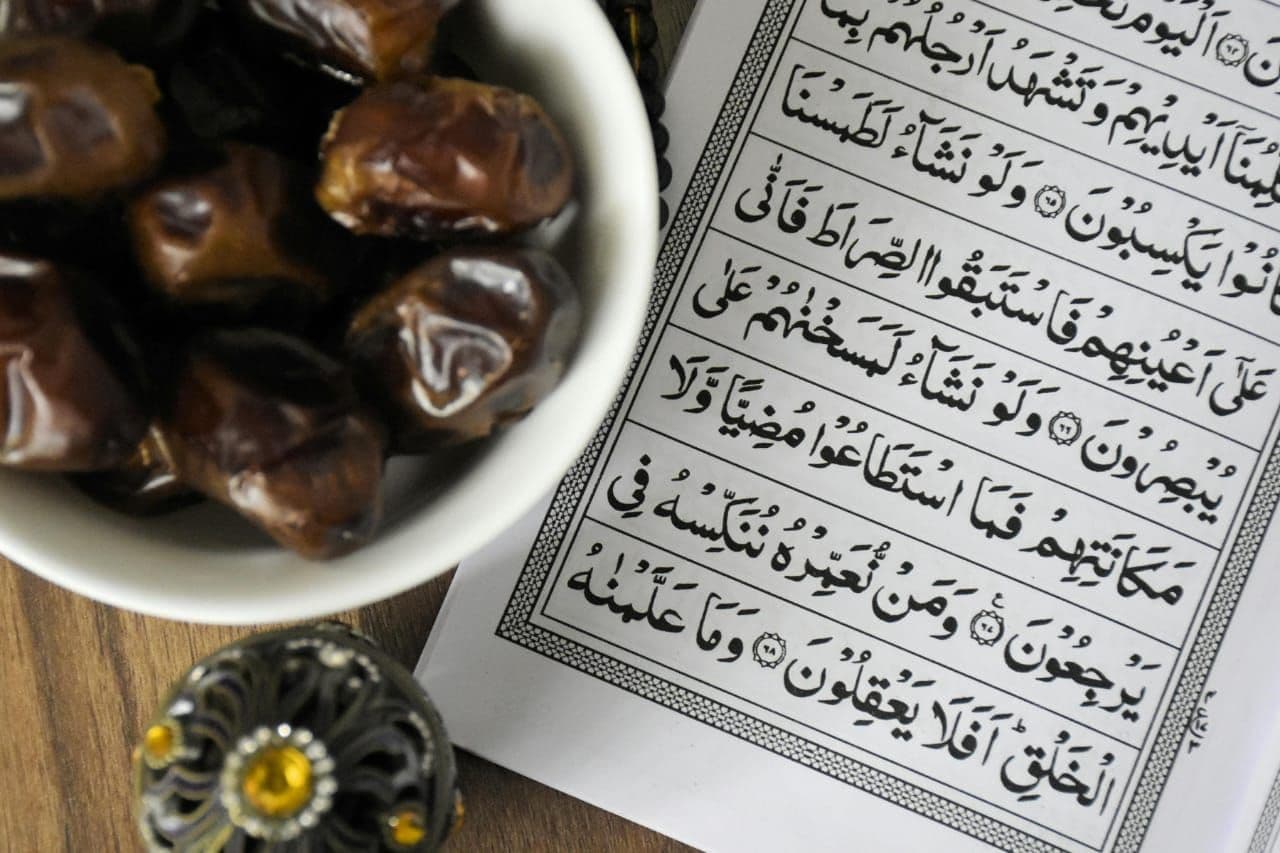 نَ ﴿٦٤﴾ اَلْيَوْمَ
لِّمُنَاۤ اَيْدِيْهِمْ وَتَشْهَدُ اَرْجُلُهُمْ بِمَا
انُوْا يَكْسِبُوْنَ ﴿٦٥﴾ وَلَوْ نَشَآءُ لَطَمَسْنَا
عَلٰٓى اَعْيُنِهِمْ فَاسْتَبَقُوا الصِّرَاطَ فَاَنّٰى
يُبْصِرُوْنَ ﴿٦٦﴾ وَلَوْ نَشَآءُ لَمَسَخْنٰهُمْ عَلٰى
مَكَانَتِهِمْ فَمَا اسْتَطَاعُوْا مُضِيًّا وَّلَا
يَرْجِعُوْنَ ﴿٦٧﴾ ۧ وَمَنْ نُّعَمِّرْهُ نُنَكِّسْهُ فِى
الْخَلْقِ ؕ اَفَلَا يَعْقِلُوْنَ ﴿٦٨﴾ وَمَا عَلَّمْنٰهُ